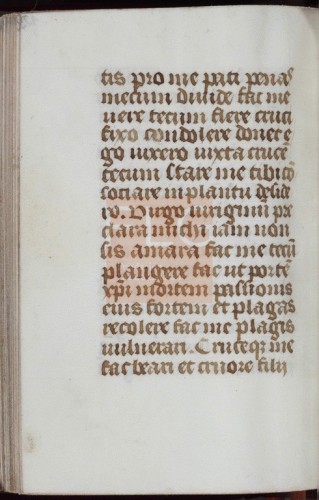 tis pro me pati penas
mecum diuide fac me
uere tecum flere cruci
fixo condolere donec e
go uixero iuxta crucē
tecum stare me tibi cō
sociare in planctu deside
ro. Virgo uirginum pre
clara michi iam non
sis amara fac me tecū
plangere fac ut portē
xp̄i mortem passionis
eius sortem et plagas
recolere fac me plagis
uulnerari. Cruceqꝫ me
fac beari et cruore filij